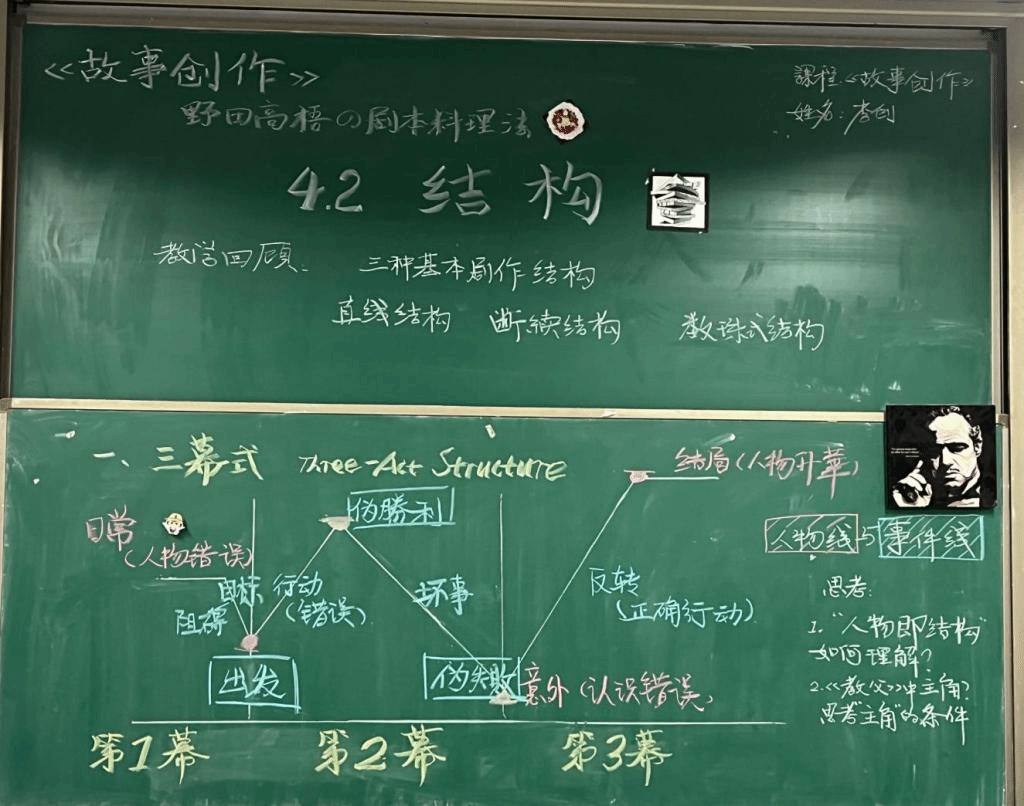 《故事创作》
野田高梧の剧本料理法
课程:《故事创作》
姓名:李创
4.2 结构
教学回顾:
三种基本剧作结构
直线结构 断续结构 散珠式结构
一、三幕式 Three-Act Structure
日常
(人物错误)
目标
阻碍
出发
行动
(错误)
伪胜利
坏事
伪失败
意外(认识错误)
反转
(正确行动)
结局(人物升华)
人物线与事件线
思考:
1.“人物即结构”
如何理解?
2.《教父》中主角?
思考“主角”的条件
第1幕 第2幕 第3幕